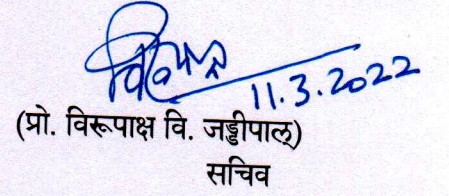 11.3.2022
(प्रो. विरूपाक्ष वि. जड्डीपाल्)
सचिव